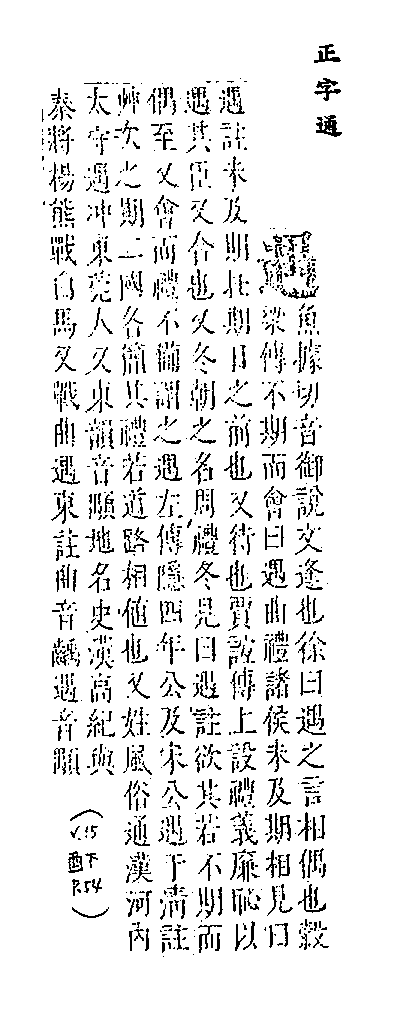 正字通
遇
魚據切音御說文逢也徐曰遇之言相偶也穀
梁傳不期而會曰遇曲禮諸侯未及期相見曰
遇註未及期在期日之前也又待也賈誼傳上設禮義廉恥以
遇其臣又合也又冬朝之名周禮冬見曰遇註欲其若不期而
偶至又會而禮不備謂之遇左傳隱四年公及宋公遇于淸註
艸次之期二國各簡其禮若道路相值也又姓風俗通漢河內
太守遇冲東莞人又東韻音顒地名史漢高紀與
秦將楊熊戰白馬又戰曲遇東註曲音齲遇音顒
(V.15
酉下
P.54)